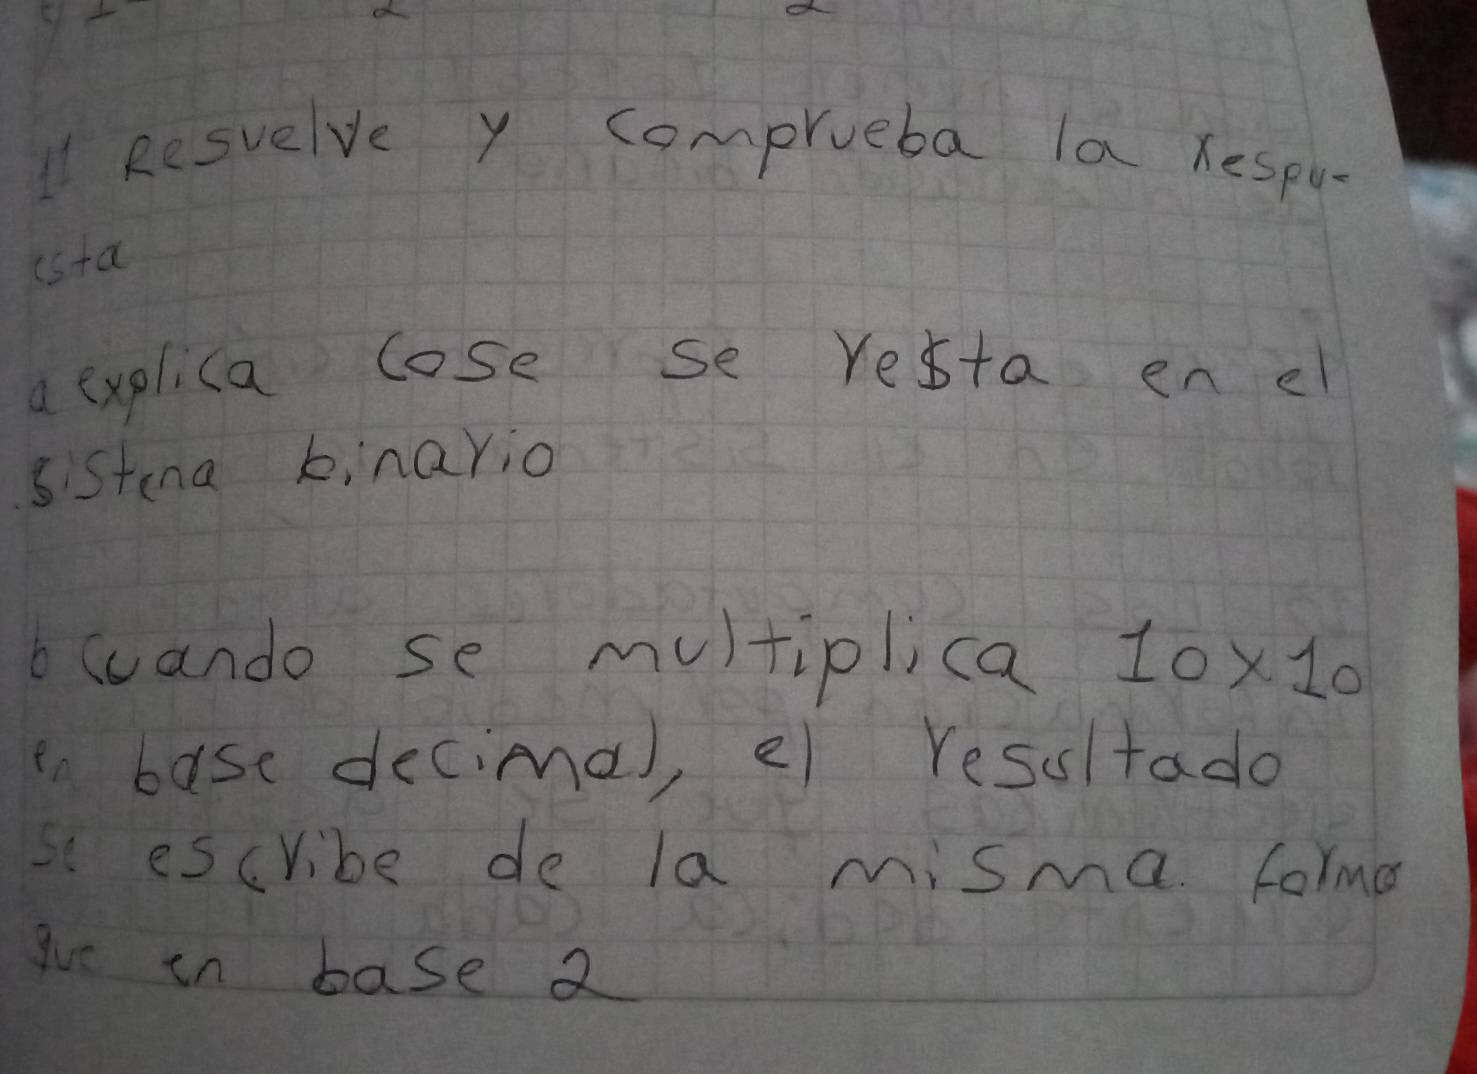 11 Resuelve y comprueba la respu-
esta
a explica cose se resta en el
sistena binario
b Cuando se multiplica 10x10
en base decimal, el resultado
se escribe de la misma forma
que en base 2